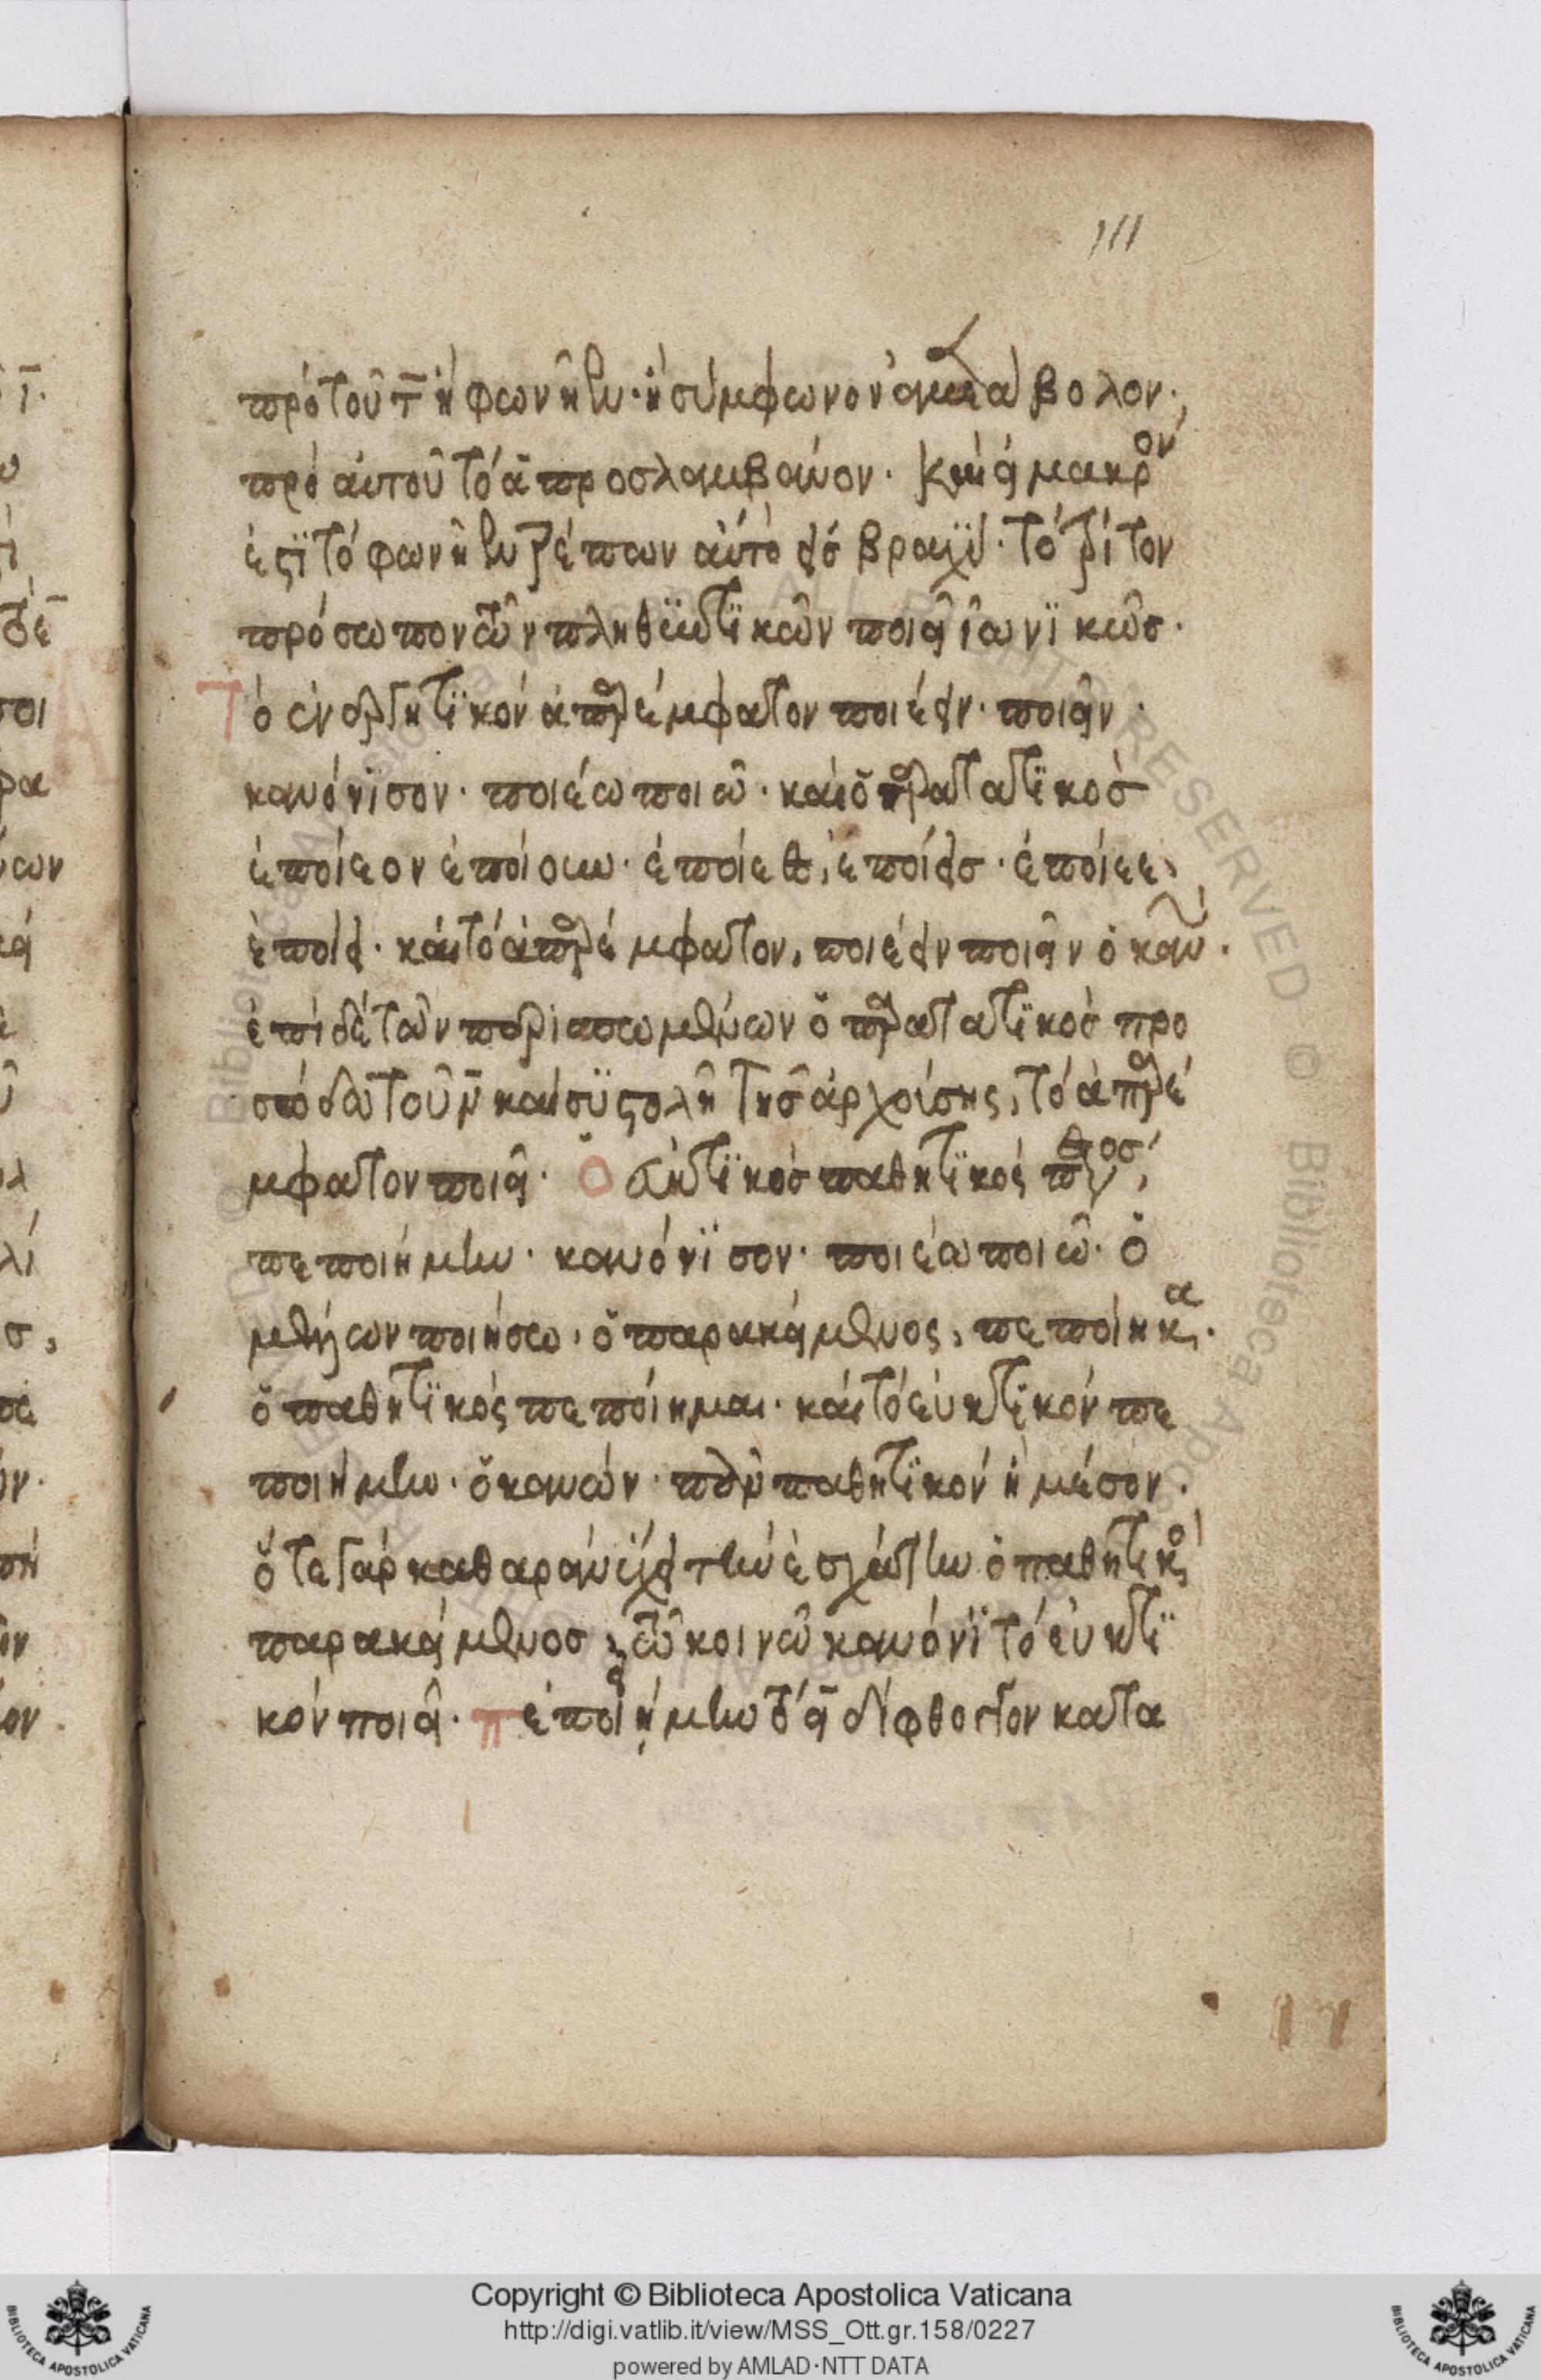 111
πρὸ τοῦ τ̅ ἢ φωνῆεν· ἢ σύμφωνον ἀμετάβολον·
πρὸ αὐτοῦ τὸ α̅ προσλαμβάνον· κἂν μακρὸν
ἐστὶ τὸ φωνῆεν τρέπων αὐτὸ εἰς βραχύ· τὸ τρίτον
πρόσωπον τῶν πληθϋντϊκῶν ποιεῖ ἰωνϊκῶσ·
Τὸ ἐνεργητϊκὸν ἀπαρέμφατον ποιέειν· ποιεῖν·
κανόνϊσον· ποιέω ποιῶ· καὶ ὁ παρατατϊκόσ
ἐποίεον ἐποίουν· ἐποίεες, ἐποίεισ· ἐποίεε,
ἐποίει· καὶ τὸ ἀπαρέμφατον, ποιέειν ποιεῖν ὁ κανών·
ἐπὶ δὲ τῶν περισπωμένων ὁ παρατατϊκόσ προ
σόδω τοῦ ν̅ καὶ συστολῆ τῆσ ἀρχούσης, τὸ ἀπαρέ
μφατον ποιεῖ· Ὁ εὐκτϊκόσ παθητϊκός
πεποιήμην· κανόνϊσον· ποιέω ποιῶ· ὁ
μέλλων ποιήσω, ὁ παρακείμενος, πεποίηκα·
ὁ παθητϊκός πεποίημαι· καὶ τὸ εὐκτϊκόν πε
ποιήμην· ὁ κανών· παθητϊκόν ἢ μέσον·
ὅτε γὰρ καθαρὰν ἔχει τὴν ἐσχάτην ὁ παθητϊκός
παρακείμενοσ τῶ κοινῶ κανόνϊ τὸ εὐκτϊ
κόν ποιεῖ· πεποιήμην δίφθογγον κατα
Copyright © Biblioteca Apostolica Vaticana
http://digi.vatlib.it/view/MSS_Ott.gr.158/0227
powered by AMLAD·NTT DATA